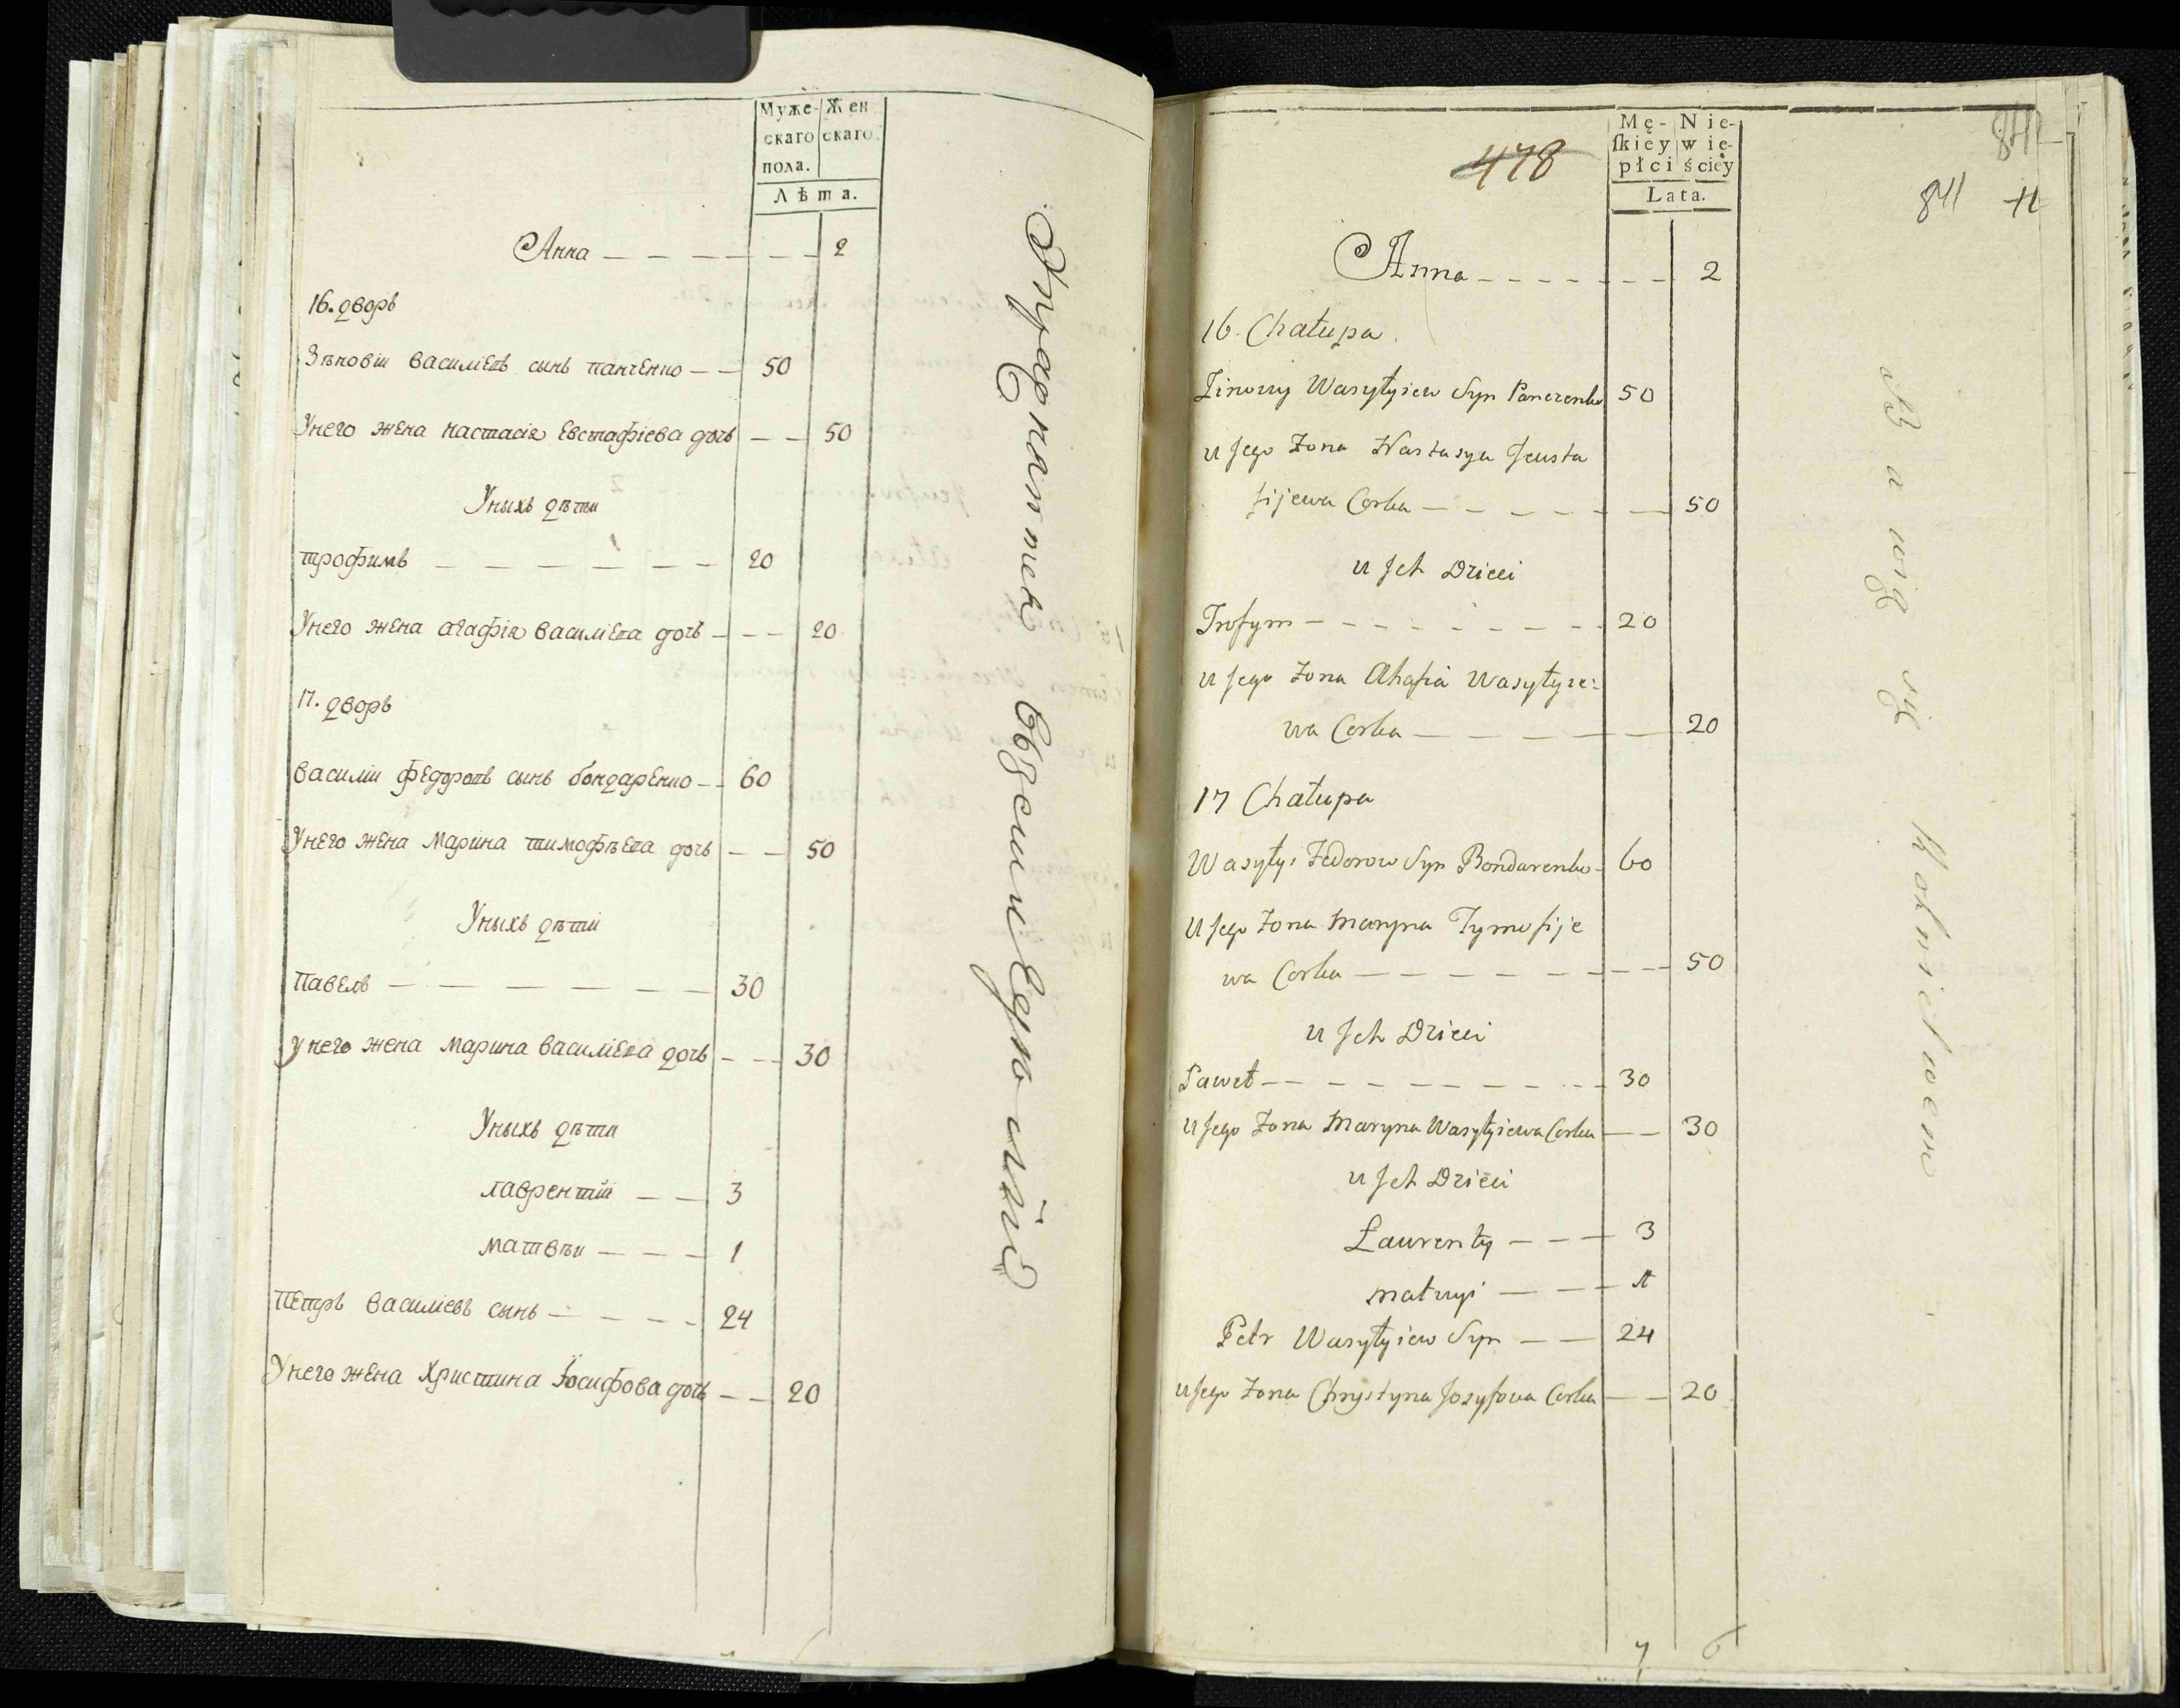 Муже- Жен
скаго скаго.
пола.
Лѣта.
Анна — — — — — — 2
16. дворъ
Зѣновіи василіевъ сынъ панченко — — 50
Унего жена настасія Евстафіева дочь — — 50
Уныхъ дѣти
трофимъ — — — — — — — 20
Унего жена агафія василіева дочь — — — 20
17. дворъ
василіи федоровъ сынъ бондаренко — — 60
Унего жена марина тимофѣева дочь — — 50
Уныхъ дѣти
павелъ — — — — — — — 30
унего жена марина василіева дочь — — 30
Уныхъ дѣти
лаврентіи — — 3
матвѣи — — — 1
петръ василіевъ сынъ — — — — 24
Унего жена христина Іосифова дочь — — 20
478
Mę- Nie-
ſkiey wie-
płci ściey
Lata.
841
841
Anna — — — — — — — 2
16. Chałupa
Zinowy Wasylyiew Syn Panczenko 50
u Jego Zona Nastasya Jewsta
fijewa Corka — — — — — — — 50
u Jch Dzieci
Trofym — — — — — — — — 20
u Jego Zona Ahafia Wasylyie=
wa Corka — — — — — — 20
17 Chałupa
Wasyly Fedorow Syn Bondarenko — 60
u Jego Zona Maryna Tymofije
wa Corka — — — — — — — — 50
u Jch Dzieci
Paweł — — — — — — — — — 30
u Jego Zona Maryna Wasylyiewa Corka — — 30
u Jch Dzieci
Laurenty — — — 3
Matwyi — — — 1
Petr Wasylyiew Syn — — 24
u Jego Zona Chrystyna Jozyfowa Corka — — 20
7 6